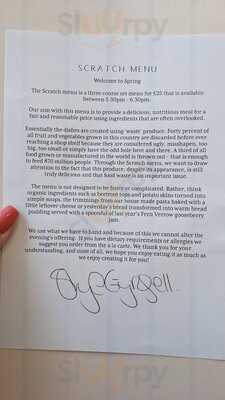 Sluurpy
SCRATCH MENU
Welcome to Spring
The Scratch menu is a three course set menu for £25 that is available
between 5.30pm - 6.30pm.
Our aim with this menu is to provide a delicious, nutritious meal for a
fair and reasonable price using ingredients that are often overlooked.
Essentially the dishes are created using 'waste' produce. Forty percent of
all fruit and vegetables grown in this country are discarded before ever
reaching a shop shelf because they are considered ugly, misshapen, too
big, too small or simply have the odd hole here and there. A third of all
food grown or manufactured in the world is thrown out - that is enough
to feed 870 million people. Through the Scratch menu, we want to draw
attention to the fact that this produce, despite its appearance, is still
truly delicious and that food waste is an important issue.
The menu is not designed to be fancy or complicated. Rather, think
organic ingredients such as beetroot tops and potato skins turned into
simple soups, the trimmings from our house made pasta baked with a
little leftover cheese or yesterday's bread transformed into warm bread
pudding served with a spoonful of last year's Fern Verrow gooseberry
jam.
We use what we have to hand and because of this we cannot alter the
evening's offering. If you have dietary requirements or allergies we
suggest you order from the a la carte. We thank you for your
understanding, and most of all, we hope you enjoy eating it as much as
we enjoy creating it for you!
Sluurpy